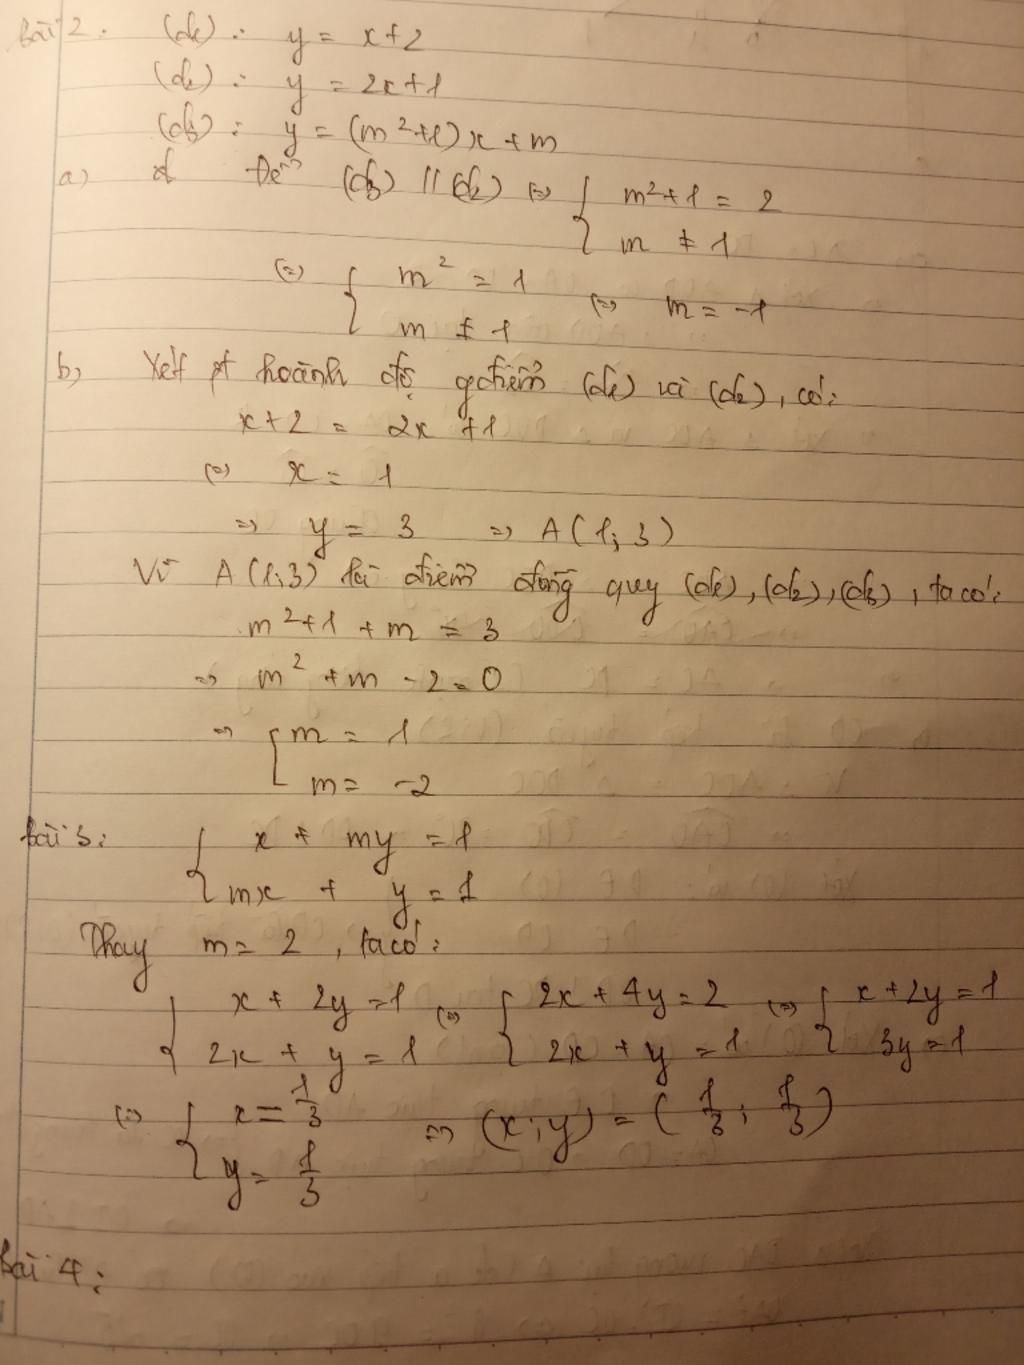 Bài 2: (d1): y = x+2
(d2): y = 2x+1
(d3): y = (m²+1)x + m
a) Để (d3) // (d2) (=) { m²+1 = 2
m ≠ 1
(=) { m² = 1 (=) m = -1
m ≠ 1
b, Xét pt hoành độ gđiểm (d1) và (d2), có:
x+2 = 2x +1
(=) x = 1
=> y = 3 => A(1;3)
Vì A(1;3) là điểm đồng quy (d1), (d2), (d3), ta có:
m²+1 +m = 3
=> m² +m -2=0
=> [ m = 1
m= -2
Bài 3: { x + my =1
mx + y =1
Thay m= 2, ta có:
{ x + 2y =1 (=) { 2x + 4y = 2 (=) { x +2y =1
2x + y = 1 2x + y =1 3y =1
(=) { x = 1/3 => (x;y) = (1/3; 1/3)
y = 1/3
Bài 4: